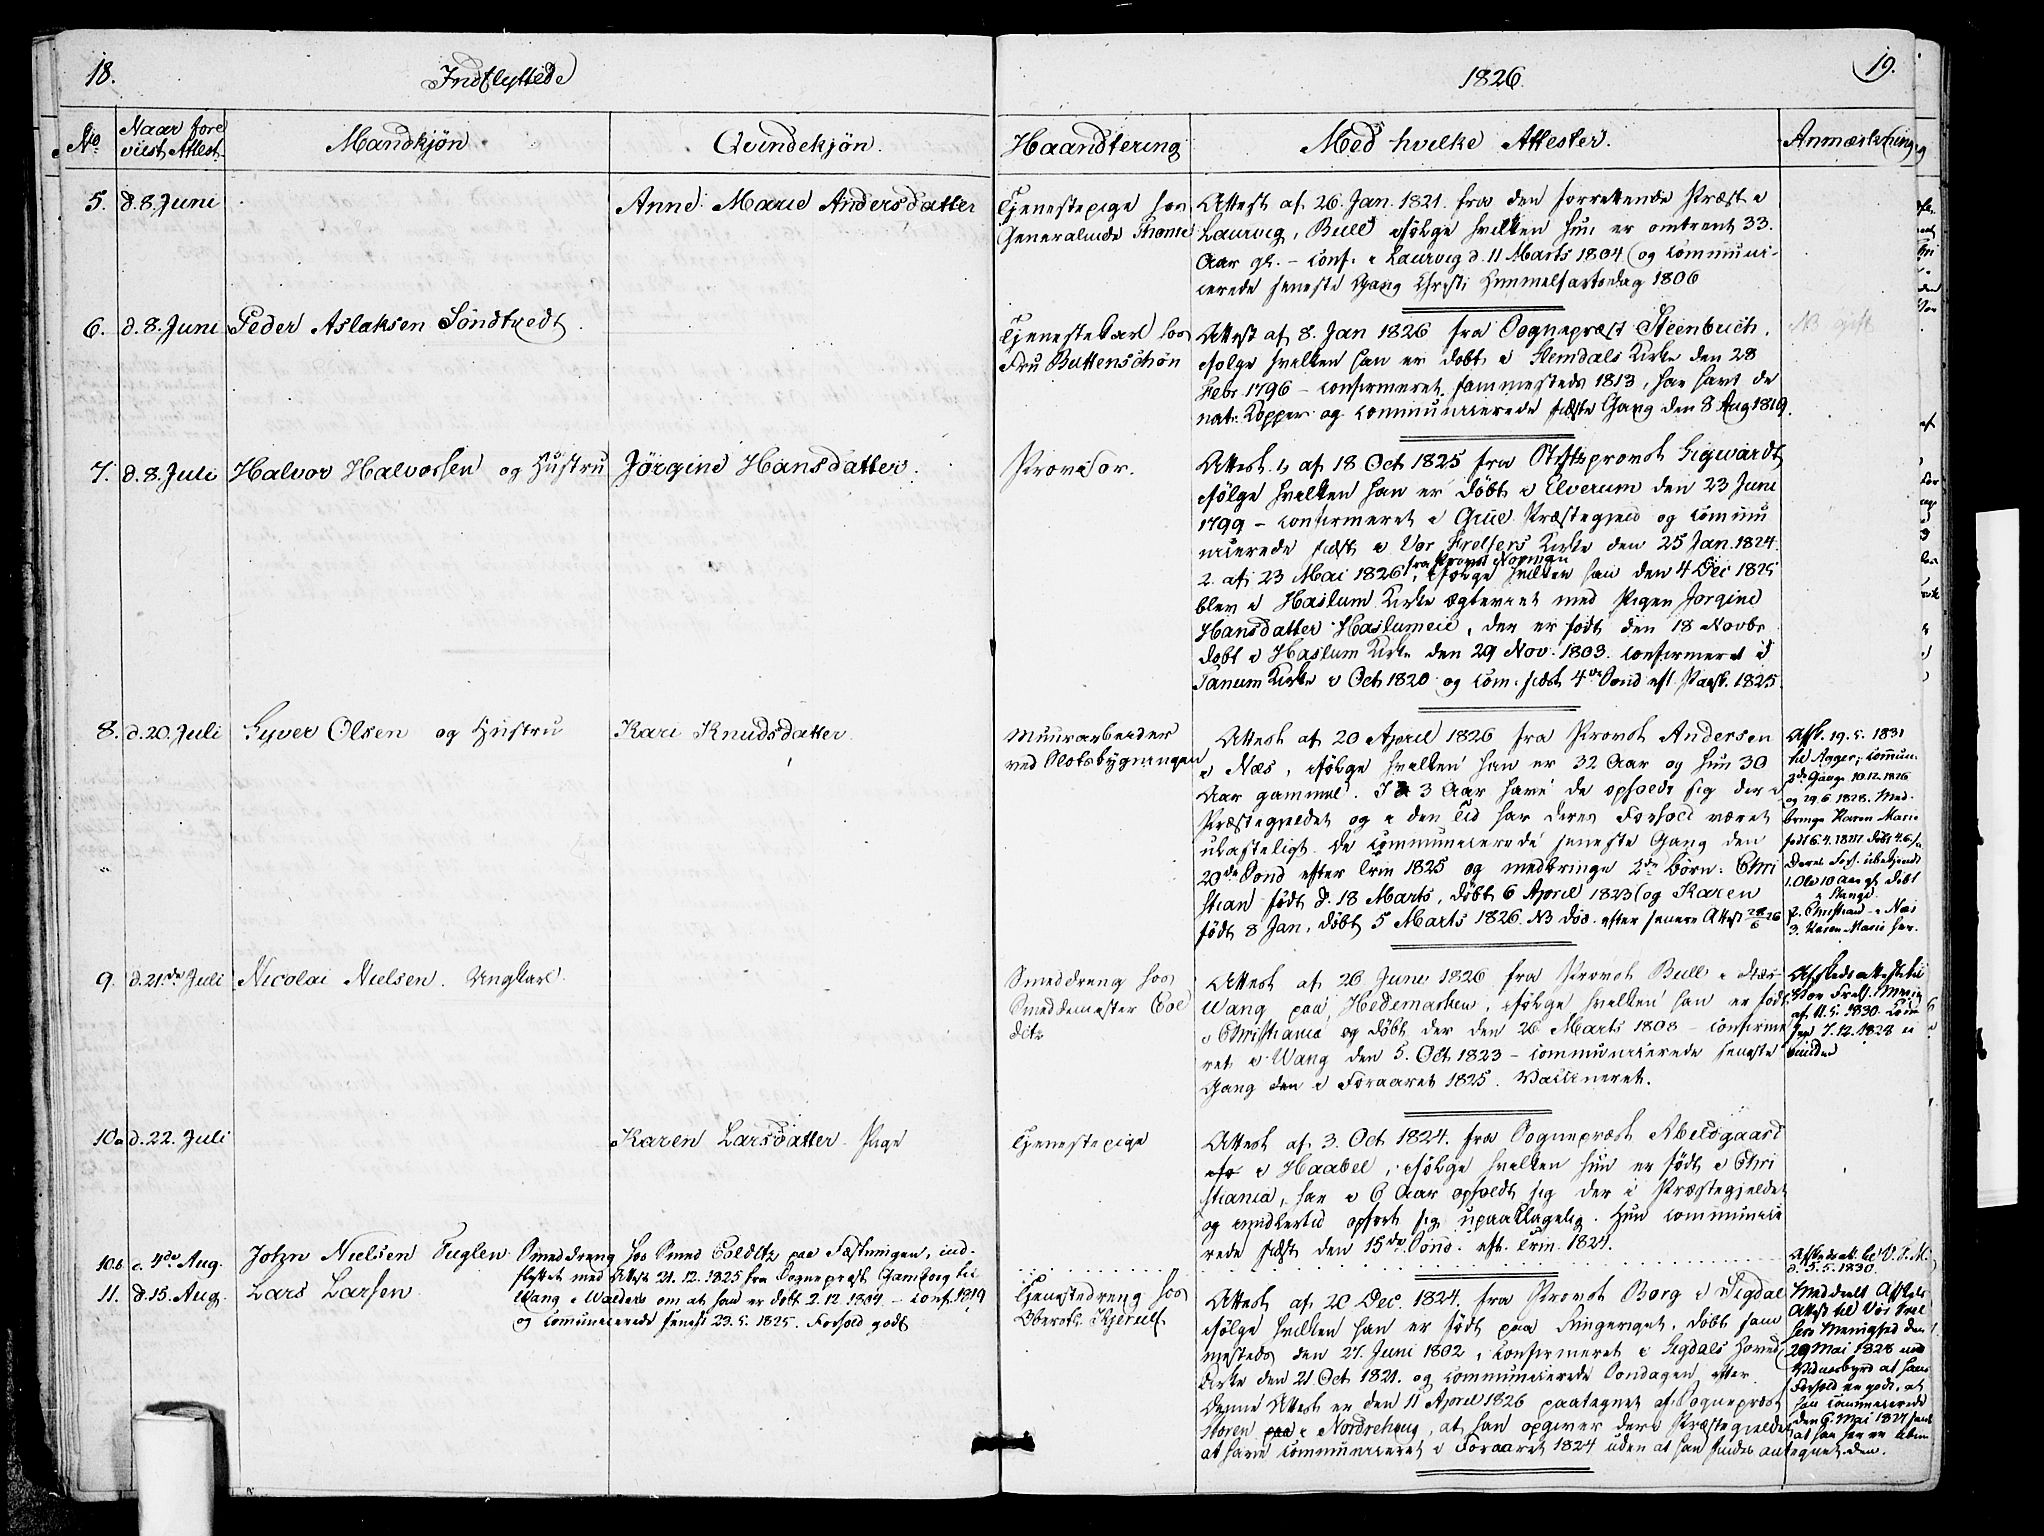 18.
Indflyttede
1826.
19.
No
Naar fore
viist Attest.
Mandkjøn
Qvindekjøn.
Haandtering
Med hvilke Attester.
Anmærkning
5.
d. 8. Juni
Anne Marie Andersdatter
Tjenestepige hos
Generalinde Thome
Attest af 26. Jan. 1821. fra den forrettende Præst i
Laurvig, Bull ifølge hvilken hun er omtrent 33.
Aar gl. - conf. i Laurvig d. 11 Marts 1804 og communi-
cerede seneste Gang Christi Himmelfartsdag 1806
6.
d. 8. Juni
Peder Aslaksen Søndtvedt.
Tjenestekarl hos
Fru Buttenschøn
Attest af 8. Jan 1826 fra Sognepræst Steenbuch,
ifølge hvilken han er døbt i Slemdals Kirke den 28
Febr 1796 - confirmeret sammesteds 1813, har havt de
nat. Kopper og communicerede sidste Gang den 8 Aug 1819.
NB gift
7.
d. 8. Juli
Halvor Halvorsen og Hustru
Jørgine Hansdatter.
Provisor.
Attest. 1, af 18 Oct 1825 fra Stiftsprovst Sigwardt
ifølge hvilken han er døbt i Elverum den 23 Juni
1799 - confirmeret i Grue Præstegjeld og commu
nicerede sidst i Vor Frelsers Kirke den 25 Jan. 1824.
fra Provst Normann
2. af 23 Mai 1826, ifølge hvilken han den 4 Dec 1825
blev i Haslum Kirke ægteviet med Pigen Jørgine
Hansdatter Haslumeie, der er født den 18 Novbr
døbt i Haslum Kirke den 29 Nov. 1803. confirmeret i
Tanum Kirke i Oct 1820 og com. sidst 4de Sønd eft Paask. 1825.
8.
d. 20. Juli
Syver Olsen og Hustru
Kari Knudsdatter.
Muurarbeider
ved Slotsbygningen
Attest af 20 April 1826 fra Provst Andersen
i Næs, ifølge hvilken han er 32 Aar og hun 30
Aar gammel. I 3 Aar have de opholdt sig der i
Præstegjeldet og i den Tid har deres Forhold været
ulasteligt. De communicerede seneste Gang den
20de Sønd efter Trin 1825 og medbringe 2de Børn: Chri
stian født d. 18 Marts, døbt 6 April 1823 og Karen
født 8 Jan, døbt 5 Marts 1826. NB død. efter senere Attest
Afsk. 19. 5. 1831
til Agger; commun.
2de Gange 10.12.1826
og 29.6 1828. Med-
bringe Karen Marie
født 6.4.1827 døbt 4.6.
Deres Forh. ubekjendt
1. Ole 10 Aar gl. døbt
i Stange
2. Christian - i Næs
3. Karen Marie her.
9.
d. 21de Juli
Nicolai Nielsen. Ungkarl.
Smeddreng hos
Smeddemester Col
ditz
Attest af 26 Juni 1826 fra Provst Bull i
Wang paa Hedemarken, ifølge hvilken han er født
i Christiania og døbt der den 26 Marts 1808 - confirme
ret i Wang den 5. Oct 1823 - communicerede seneste
Gang den i Foraaret 1825. Vaccineret.
Afskedsattest til
Vor Frels. Menig
af 11. 5. 1830. Com
7.12.1828
10a
d. 22. Juli
Karen Larsdatter. Pige
Tjenestepige
Attest af 3. Oct 1824. fra Sognepræst Abelsgaard
i Haabel, ifølge hvilken hun er født i Chri
stiania, har i 6 Aar opholdt sig der i Præstegjeldet
og imidlertid opført sig upaaklagelig. Hun communice
rede sidst den 15de Sønd. eft. Trin. 1824.
10b
4de Aug.
John Nielsen Fuglen
Smeddreng hos Smed Colditz paa Fæstningen, ind-
flyttet med Attest 21.12.1825 fra Sognepræst Gamborg til
Wang i Walders om at han er døbt 2.12.1804 - Conf. 1819
og Communicerede senest 23.5.1825. Forhold godt
Afskedsatt. til V.F.M.
d. 5.5.1830
11.
d. 15. Aug.
Lars Larsen
Tjenestedreng hos
Oberstl. Kjerulf
Attest af 20 Dec. 1824. fra Provst Borg i Sigdal
ifølge hvilken han er født paa Ringeriget, døbt sam
mesteds den 27. Juni 1802, confirmeret i Sigdals Hoved
Kirke den 21 Oct. 1821. og communicerede Søndagen efter
Denne Attest er den 11 April 1826 paategnet af Sognepræst
Støren paa i Norderhoug, at han opgiver der i Præstegjeldet
at have communiceret i Foraaret 1824 uden at han findes an
tegnet den.
Meddeelt Afskeds
Attest til Vor Frel
sers Menighed den
29 Mai 1828 med
Vidnesbyrd at hans
Forhold er godt, at
han communicerede
den 6. Mai 1827
at han her er